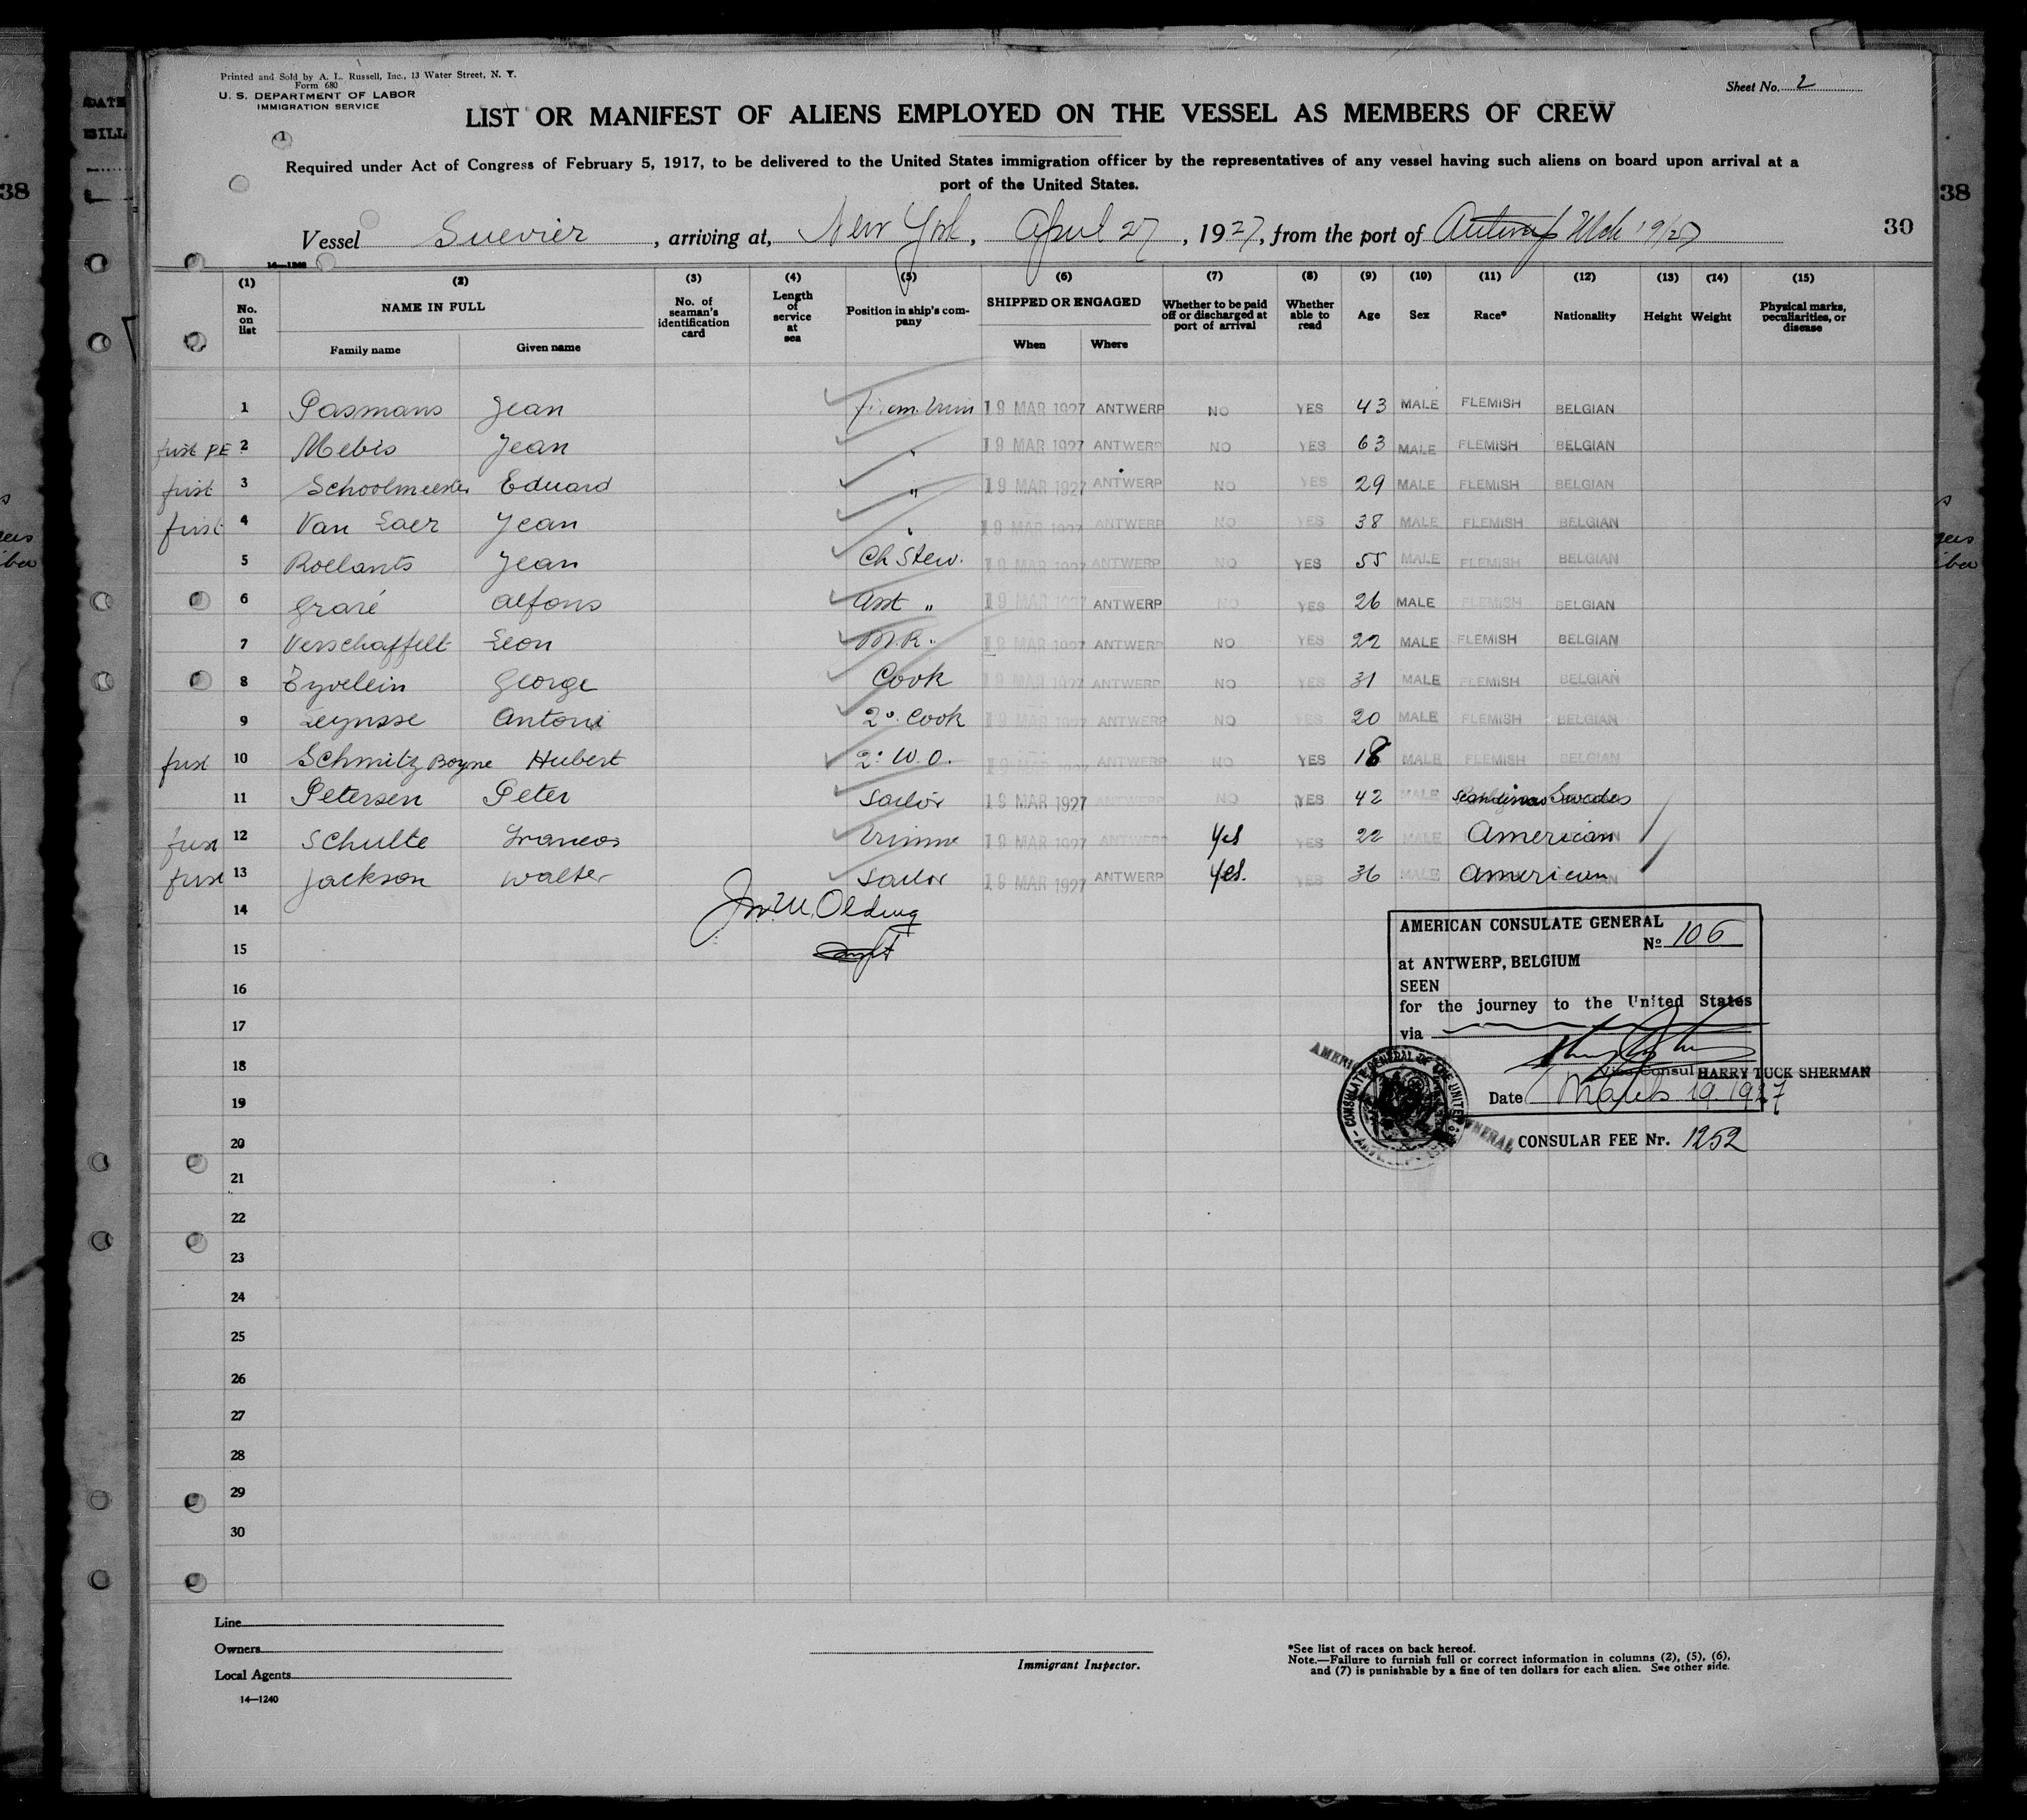 Printed and Sold by A. L. Russell, Inc., 13 Water Street, N. Y.
Form 680
U. S. DEPARTMENT OF LABOR
IMMIGRATION SERVICE
Sheet No. 2
LIST OR MANIFEST OF ALIENS EMPLOYED ON THE VESSEL AS MEMBERS OF CREW
Required under Act of Congress of February 5, 1917, to be delivered to the United States immigration officer by the representatives of any vessel having such aliens on board upon arrival at a
port of the United States.
Vessel Suevier, arriving at, New York, April 27, 1927, from the port of Antwerp Mch 19/27
30
38
38
DATE
BILL
14—1240
(1) (2) (3) (4) (5) (6) (7) (8) (9) (10) (11) (12) (13) (14) (15)
No. on list
NAME IN FULL
Family name
Given name
No. of seaman's identification card
Length of service at sea
Position in ship's company
SHIPPED OR ENGAGED
When
Where
Whether to be paid off or discharged at port of arrival
Whether able to read
Age
Sex
Race*
Nationality
Height
Weight
Physical marks, peculiarities, or disease
1 Pasmans Jean Firem. 19 MAR 1927 ANTWERP NO YES 43 MALE FLEMISH BELGIAN
first PE 2 Mebis Jean " 19 MAR 1927 ANTWERP NO YES 63 MALE FLEMISH BELGIAN
first 3 Schoolmeester Eduard " 19 MAR 1927 ANTWERP NO YES 29 MALE FLEMISH BELGIAN
first 4 Van Laer Jean " 19 MAR 1927 ANTWERP NO YES 38 MALE FLEMISH BELGIAN
5 Roelants Jean Ch Stew. 19 MAR 1927 ANTWERP NO YES 55 MALE FLEMISH BELGIAN
6 Graré Alfons Asst " 19 MAR 1927 ANTWERP NO YES 26 MALE FLEMISH BELGIAN
7 Verschaffelt Leon M.R. 19 MAR 1927 ANTWERP NO YES 22 MALE FLEMISH BELGIAN
8 Eyvelein George Cook 19 MAR 1927 ANTWERP NO YES 31 MALE FLEMISH BELGIAN
9 Leynsse Antoni 2° Cook 19 MAR 1927 ANTWERP NO YES 20 MALE FLEMISH BELGIAN
first 10 Schmitz Boyne Hubert 2° W.O. 19 MAR 1927 ANTWERP NO YES 18 MALE FLEMISH BELGIAN
11 Petersen Peter Sailor 19 MAR 1927 ANTWERP NO YES 42 MALE Scandinav Swedes
first 12 Schulte Francois Trimme 19 MAR 1927 ANTWERP Yes YES 22 MALE American
first 13 Jackson Walter Sailor 19 MAR 1927 ANTWERP Yes. YES 36 MALE American
14
Jno. M. Olding
15
16
17
18
19
20
21
22
23
24
25
26
27
28
29
30
AMERICAN CONSULATE GENERAL
No 106
at ANTWERP, BELGIUM
SEEN
for the journey to the United States
via
Vice Consul HARRY TUCK SHERMAN
Date March 19. 1927
CONSULAR FEE Nr. 1252
Line
Owners
Local Agents
14—1240
Immigrant Inspector.
*See list of races on back hereof.
Note.—Failure to furnish full or correct information in columns (2), (5), (6),
and (7) is punishable by a fine of ten dollars for each alien. See other side.